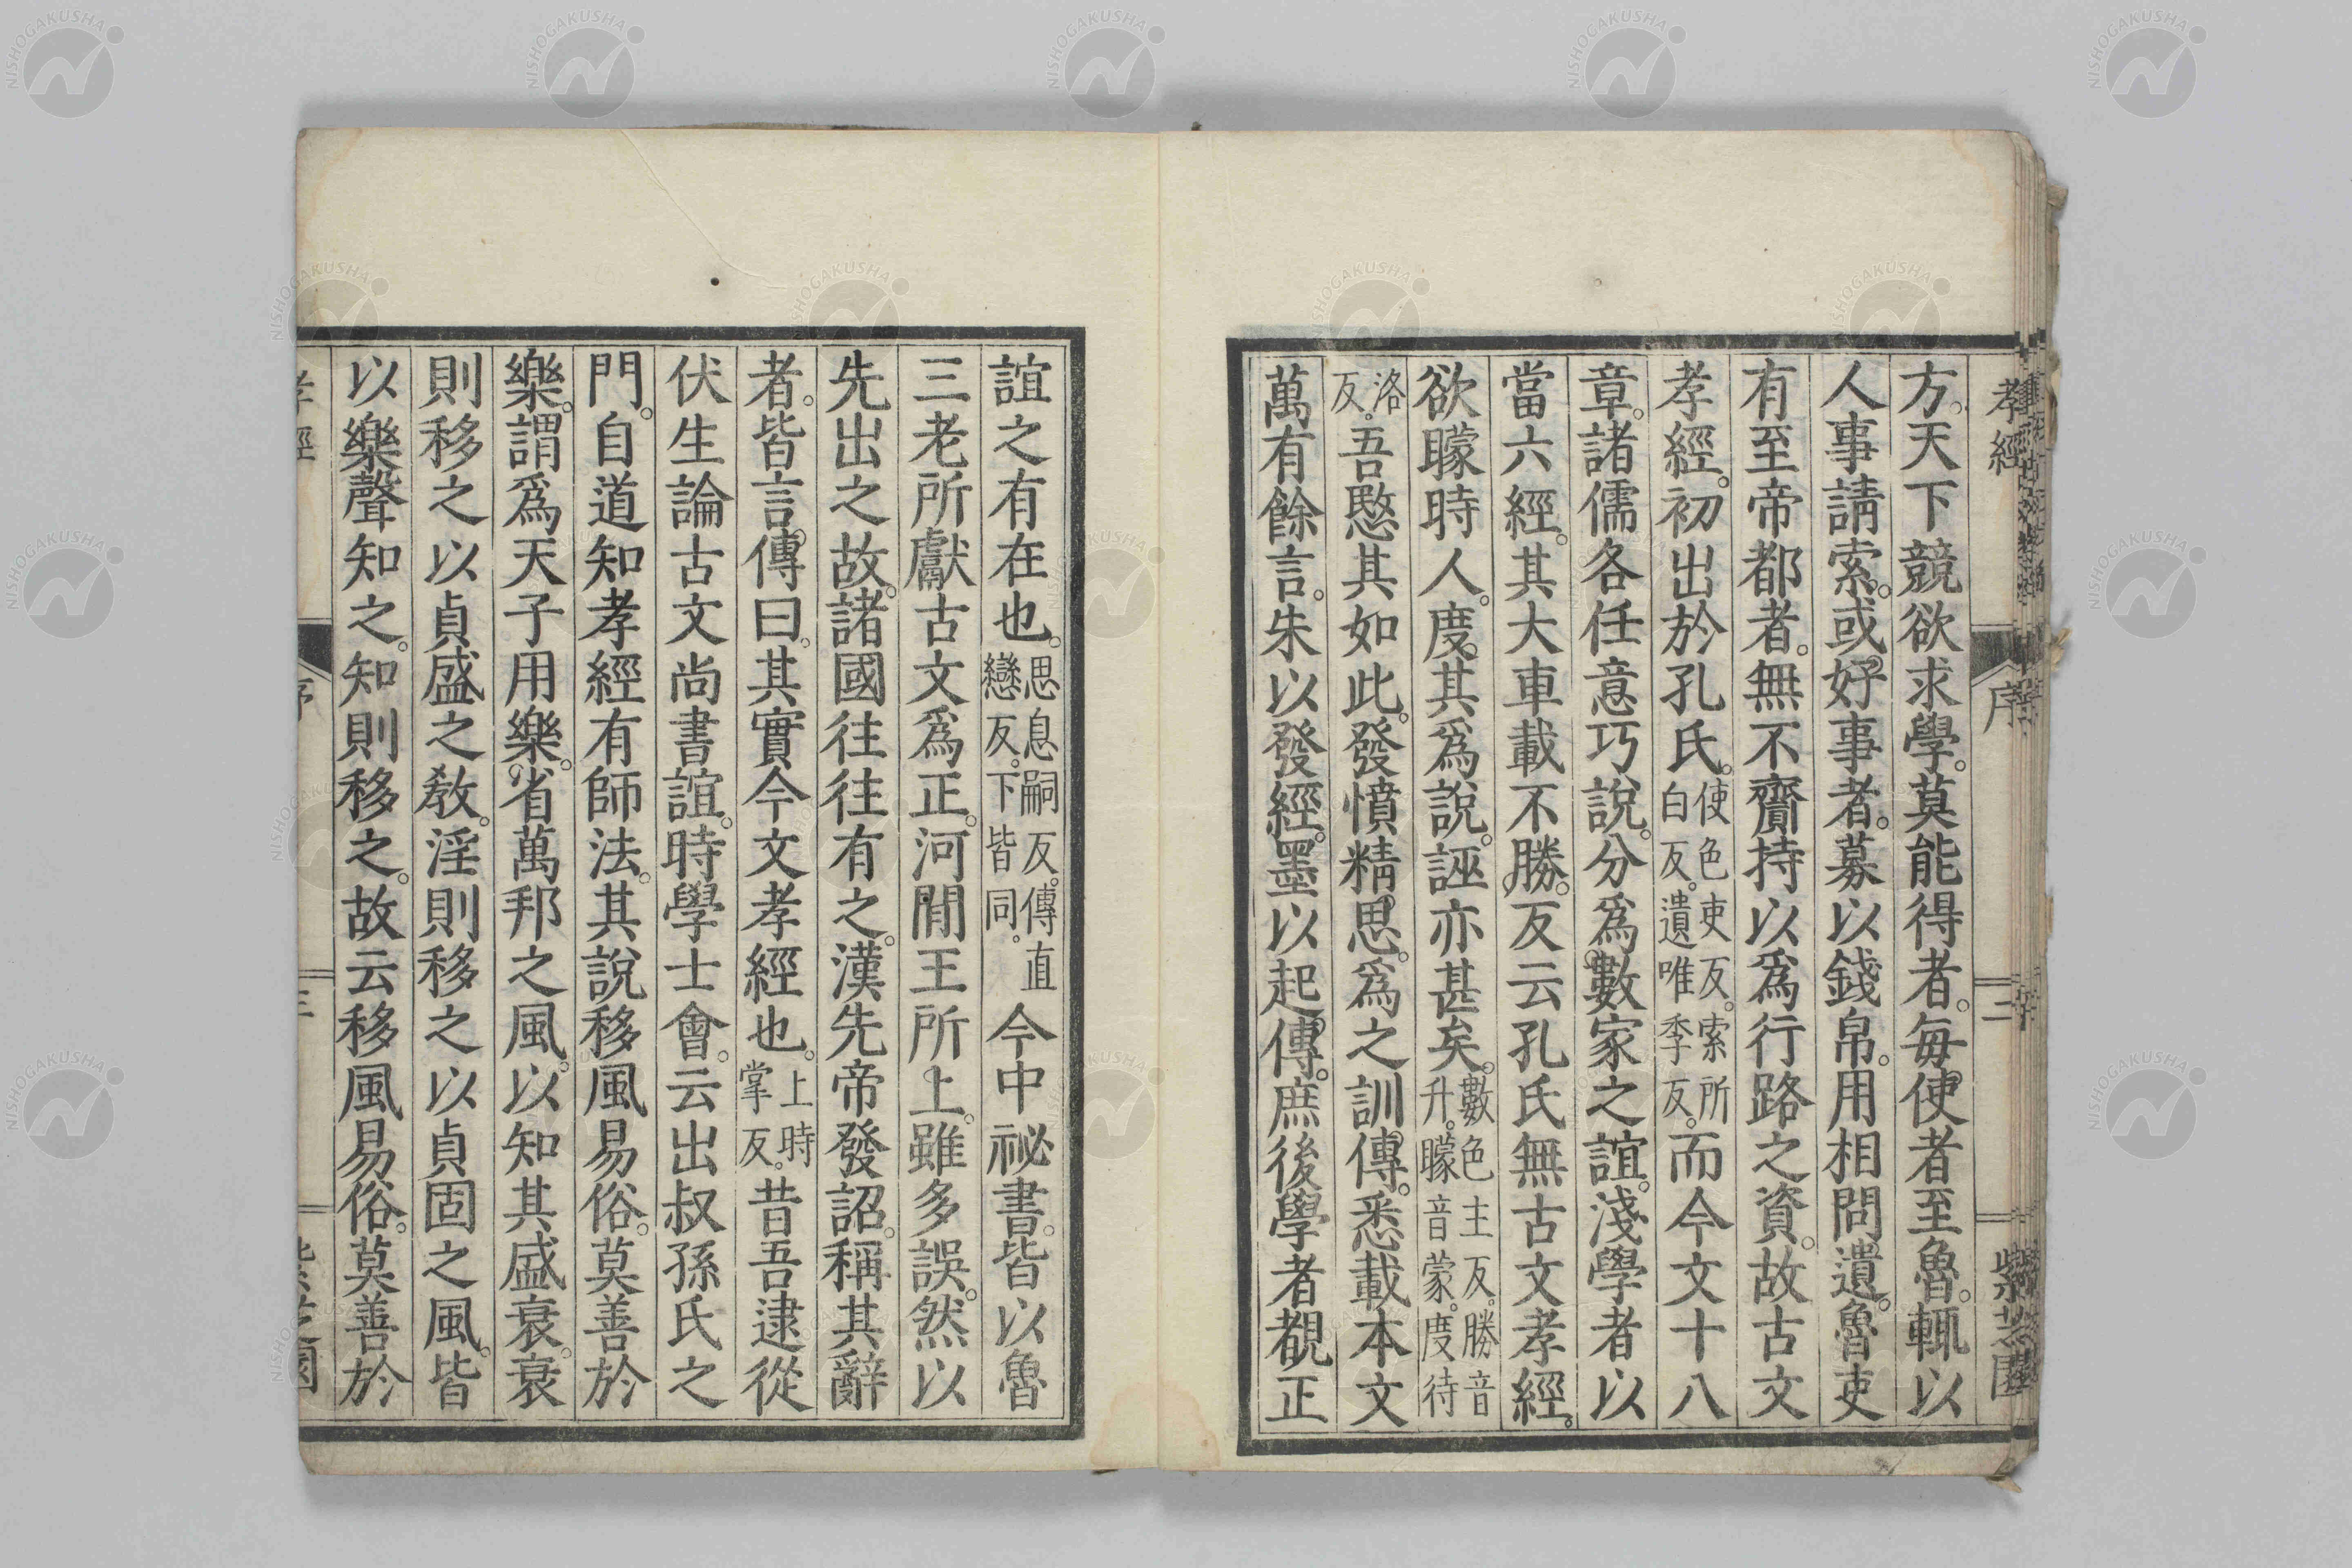 孝經 序 二 紫芝園
方。天下競欲求學。莫能得者。每使者至魯。輒以
人事請索。或好事者。募以錢帛。用相問遺。魯吏
有至帝都者。無不齎持以爲行路之資。故古文
孝經。初出於孔氏。使色吏反。索所白反。遺唯季反。而今文十八
章。諸儒各任意巧說。分爲數家之誼。淺學者以
當六經。其大車載不勝。反云孔氏無古文孝經。
欲矇時人。度其爲說。誣亦甚矣。數色主反。勝音升。矇音蒙。度待
洛反。吾愍其如此。發憤精思。爲之訓傳。悉載本文
萬有餘言。朱以發經。墨以起傳。庶後學者覩正
誼之有在也。思息嗣反。傳直戀反。下皆同。今中祕書。皆以魯
三老所獻古文爲正。河閒王所上。雖多誤。然以
先出之故。諸國往往有之。漢先帝發詔。稱其辭
者。皆言傳曰。其實今文孝經也。上時掌反。昔吾逮從
伏生論古文尚書誼。時學士會。云出叔孫氏之
門。自道知孝經有師法。其說移風易俗。莫善於
樂。謂爲天子用樂。省萬邦之風。以知其盛衰。衰
則移之以貞盛之敎。淫則移之以貞固之風。皆
以樂聲知之。知則移之。故云移風易俗。莫善於
孝經 序 三 紫芝園
NISHOGAKUSHA